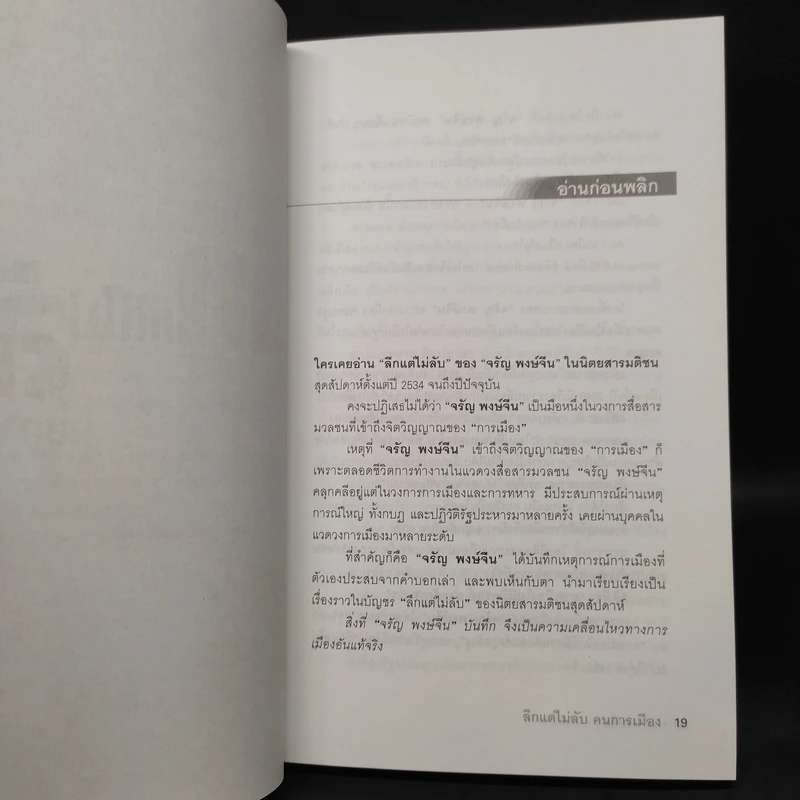 อ่านก่อนพลิก
ใครเคยอ่าน “ลึกแต่ไม่ลับ” ของ “จรัญ พงษ์จีน” ในนิตยสารมติชน
สุดสัปดาห์ตั้งแต่ปี 2534 จนถึงปีปัจจุบัน
คงจะปฏิเสธไม่ได้ว่า “จรัญ พงษ์จีน” เป็นมือหนึ่งในวงการสื่อสาร
มวลชนที่เข้าถึงจิตวิญญาณของ “การเมือง”
เหตุที่ “จรัญ พงษ์จีน” เข้าถึงจิตวิญญาณของ “การเมือง” ก็
เพราะตลอดชีวิตการทำงานในแวดวงสื่อสารมวลชน “จรัญ พงษ์จีน”
คลุกคลีอยู่แต่ในวงการการเมืองและการทหาร มีประสบการณ์ผ่านเหตุ
การณ์ใหญ่ ทั้งกบฏ และปฏิวัติรัฐประหารมาหลายครั้ง เคยผ่านบุคคลใน
แวดวงการเมืองมาหลายระดับ
ที่สำคัญก็คือ “จรัญ พงษ์จีน” ได้บันทึกเหตุการณ์การเมืองที่
ตัวเองประสบจากคำบอกเล่า และพบเห็นกับตา นำมาเรียบเรียงเป็น
เรื่องราวในบัญชร “ลึกแต่ไม่ลับ” ของนิตยสารมติชนสุดสัปดาห์
สิ่งที่ “จรัญ พงษ์จีน” บันทึก จึงเป็นความเคลื่อนไหวทางการ
เมืองอันแท้จริง
ลึกแต่ไม่ลับ คนการเมือง 19